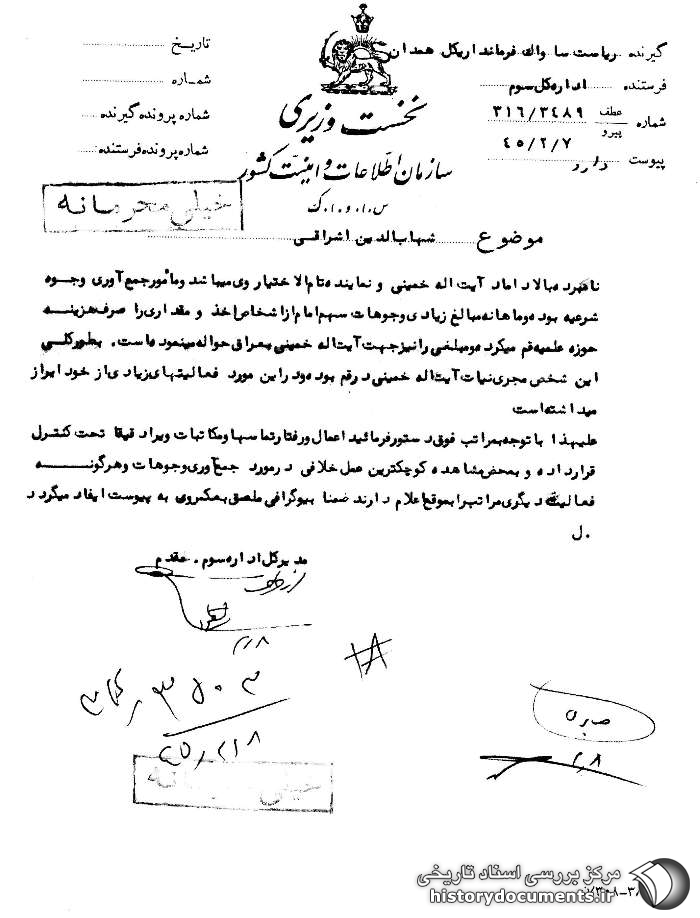 گیرنده ریاست ساواک فرماندار یکل همدان
فرستنده اداره کل سوم
شماره عطف پیرو ۳۱۶/۳۴۸۹
۴۵/۲/۷
پیوست دارد
تاریخ
شماره
شماره پرونده گیرنده
شماره پرونده فرستنده
نخست وزیری
سازمان اطلاعات و امنیت کشور
س.ا.و.ا.ک
خیلی محرمانه
موضوع شهاب الدین اشراقی
نامبرده بالا داماد آیت اله خمینی و نماینده تام الاختیار وی میباشد و مأمور جمع آوری وجوه
شرعیه بوده و ماهانه مبالغ زیادی وجوهات سهم امام از اشخاص اخذ و مقداری را صرف هزینه
حوزه علمیه قم میکرده و مبلغی را نیز جهت آیت اله خمینی بعراق حواله مینموده است. بطور کلی
این شخص مجری نیات آیت اله خمینی در قم بوده و در این مورد فعالیتهای زیادی از خود ابراز
میداشته است
علیهذا با توجه بمراتب فوق دستور فرمائید اعمال و رفتار تماسها و مکاتبات ویرا دقیقا تحت کنترل
قرار داده و بمحض مشاهده کوچکترین عمل خلافی در مورد جمع آوری وجوهات و هرگونه
فعالیت دیگری مراتب را بموقع اعلام دارند ضمنا بیوگرافی ملصق بعکس وی به پیوست ایفاد میگردد
.ل
مدیر کل اداره سوم . مقدم
۲/۸
۳۸۰۳
۴۵/۲/۱۸
صبری
۲/۸
خیلی محرمانه
مرکز بررسی اسناد تاریخی
historydocuments.ir